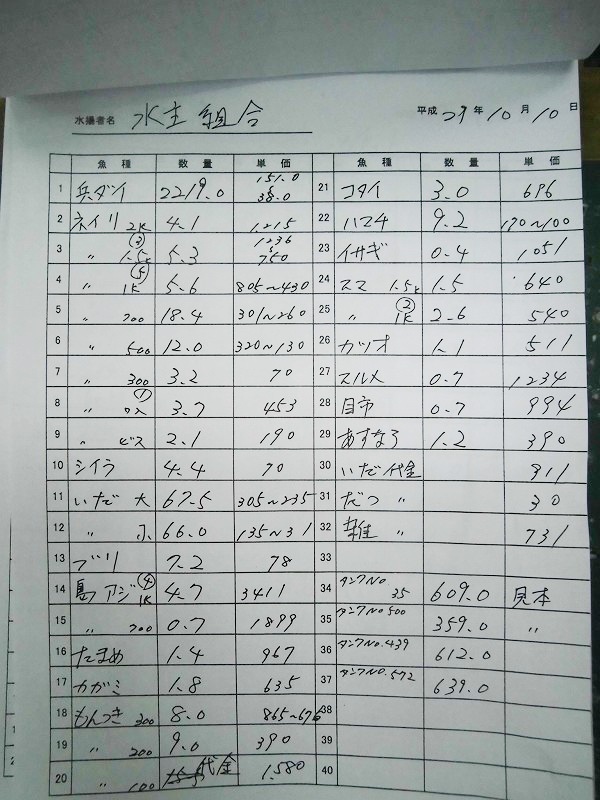 水揚者名 水主組合 平成 29年10月10日
魚種 数量 単価 魚種 数量 単価
1 兵ダイ 2219.0 151.0 38.0
2 ネイリ 2K 4.1 1,215
3 〃 ③ 1.5K 5.3 1236 750
4 〃 ⑤ 1K 5.6 805~430
5 〃 700 18.4 301~260
6 〃 500 12.0 320~130
7 〃 300 3.2 70
8 〃 ① 3.7 453
9 〃 ビス 2.1 190
10 シイラ 4.4 70
11 いだ 大 67.5 305~235
12 〃 小 66.0 135~31
13 ブリ 7.2 78
14 島アジ ④ 1K 4.7 3411
15 〃 700 0.7 1899
16 たまめ 1.4 967
17 カガミ 1.8 635
18 もんつき 300 8.0 865~676
19 〃 200 9.0 390
20 〃 100 代金 1,580
21 コダイ 3.0 696
22 ハマチ 9.2 170~100
23 イサギ 0.4 1051
24 スマ 1.5K 1.5 640
25 〃 ② 1K 2.6 540
26 カツオ 1.1 511
27 スルメ 0.7 1234
28 目市 0.7 994
29 あすなろ 1.2 390
30 いだ 代金 911
31 だつ 〃 30
32 雑 〃 731
33
34 タンクNo 35 609.0 見本
35 タンクNo 500 359.0 〃
36 タンクNO.439 612.0
37 タンクNO.572 639.0
38
39
40